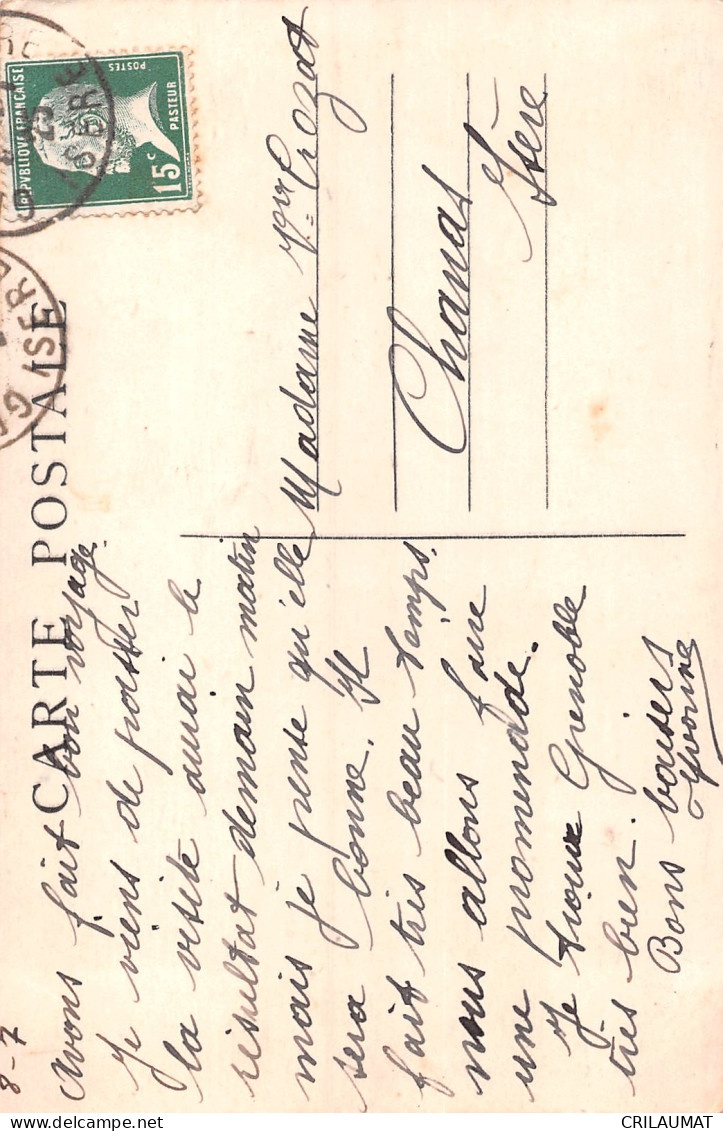 CARTE POSTALE
8-7
Avons fait bon voyage.
Je viens de passer
la visite aurai le
résultat demain matin
mais je pense qu'elle
sera bonne. Il
fait très beau temps.
nous allons faire
une promenade.
Je trouve Grenoble
très bien.
Bons baisers
Yvonne
Madame Vve Crozat
Chanas
Isère
REPVBLIQVE FRANCAISE
POSTES
PASTEUR
15c
ISERE
ISERE
CRILAUMAT